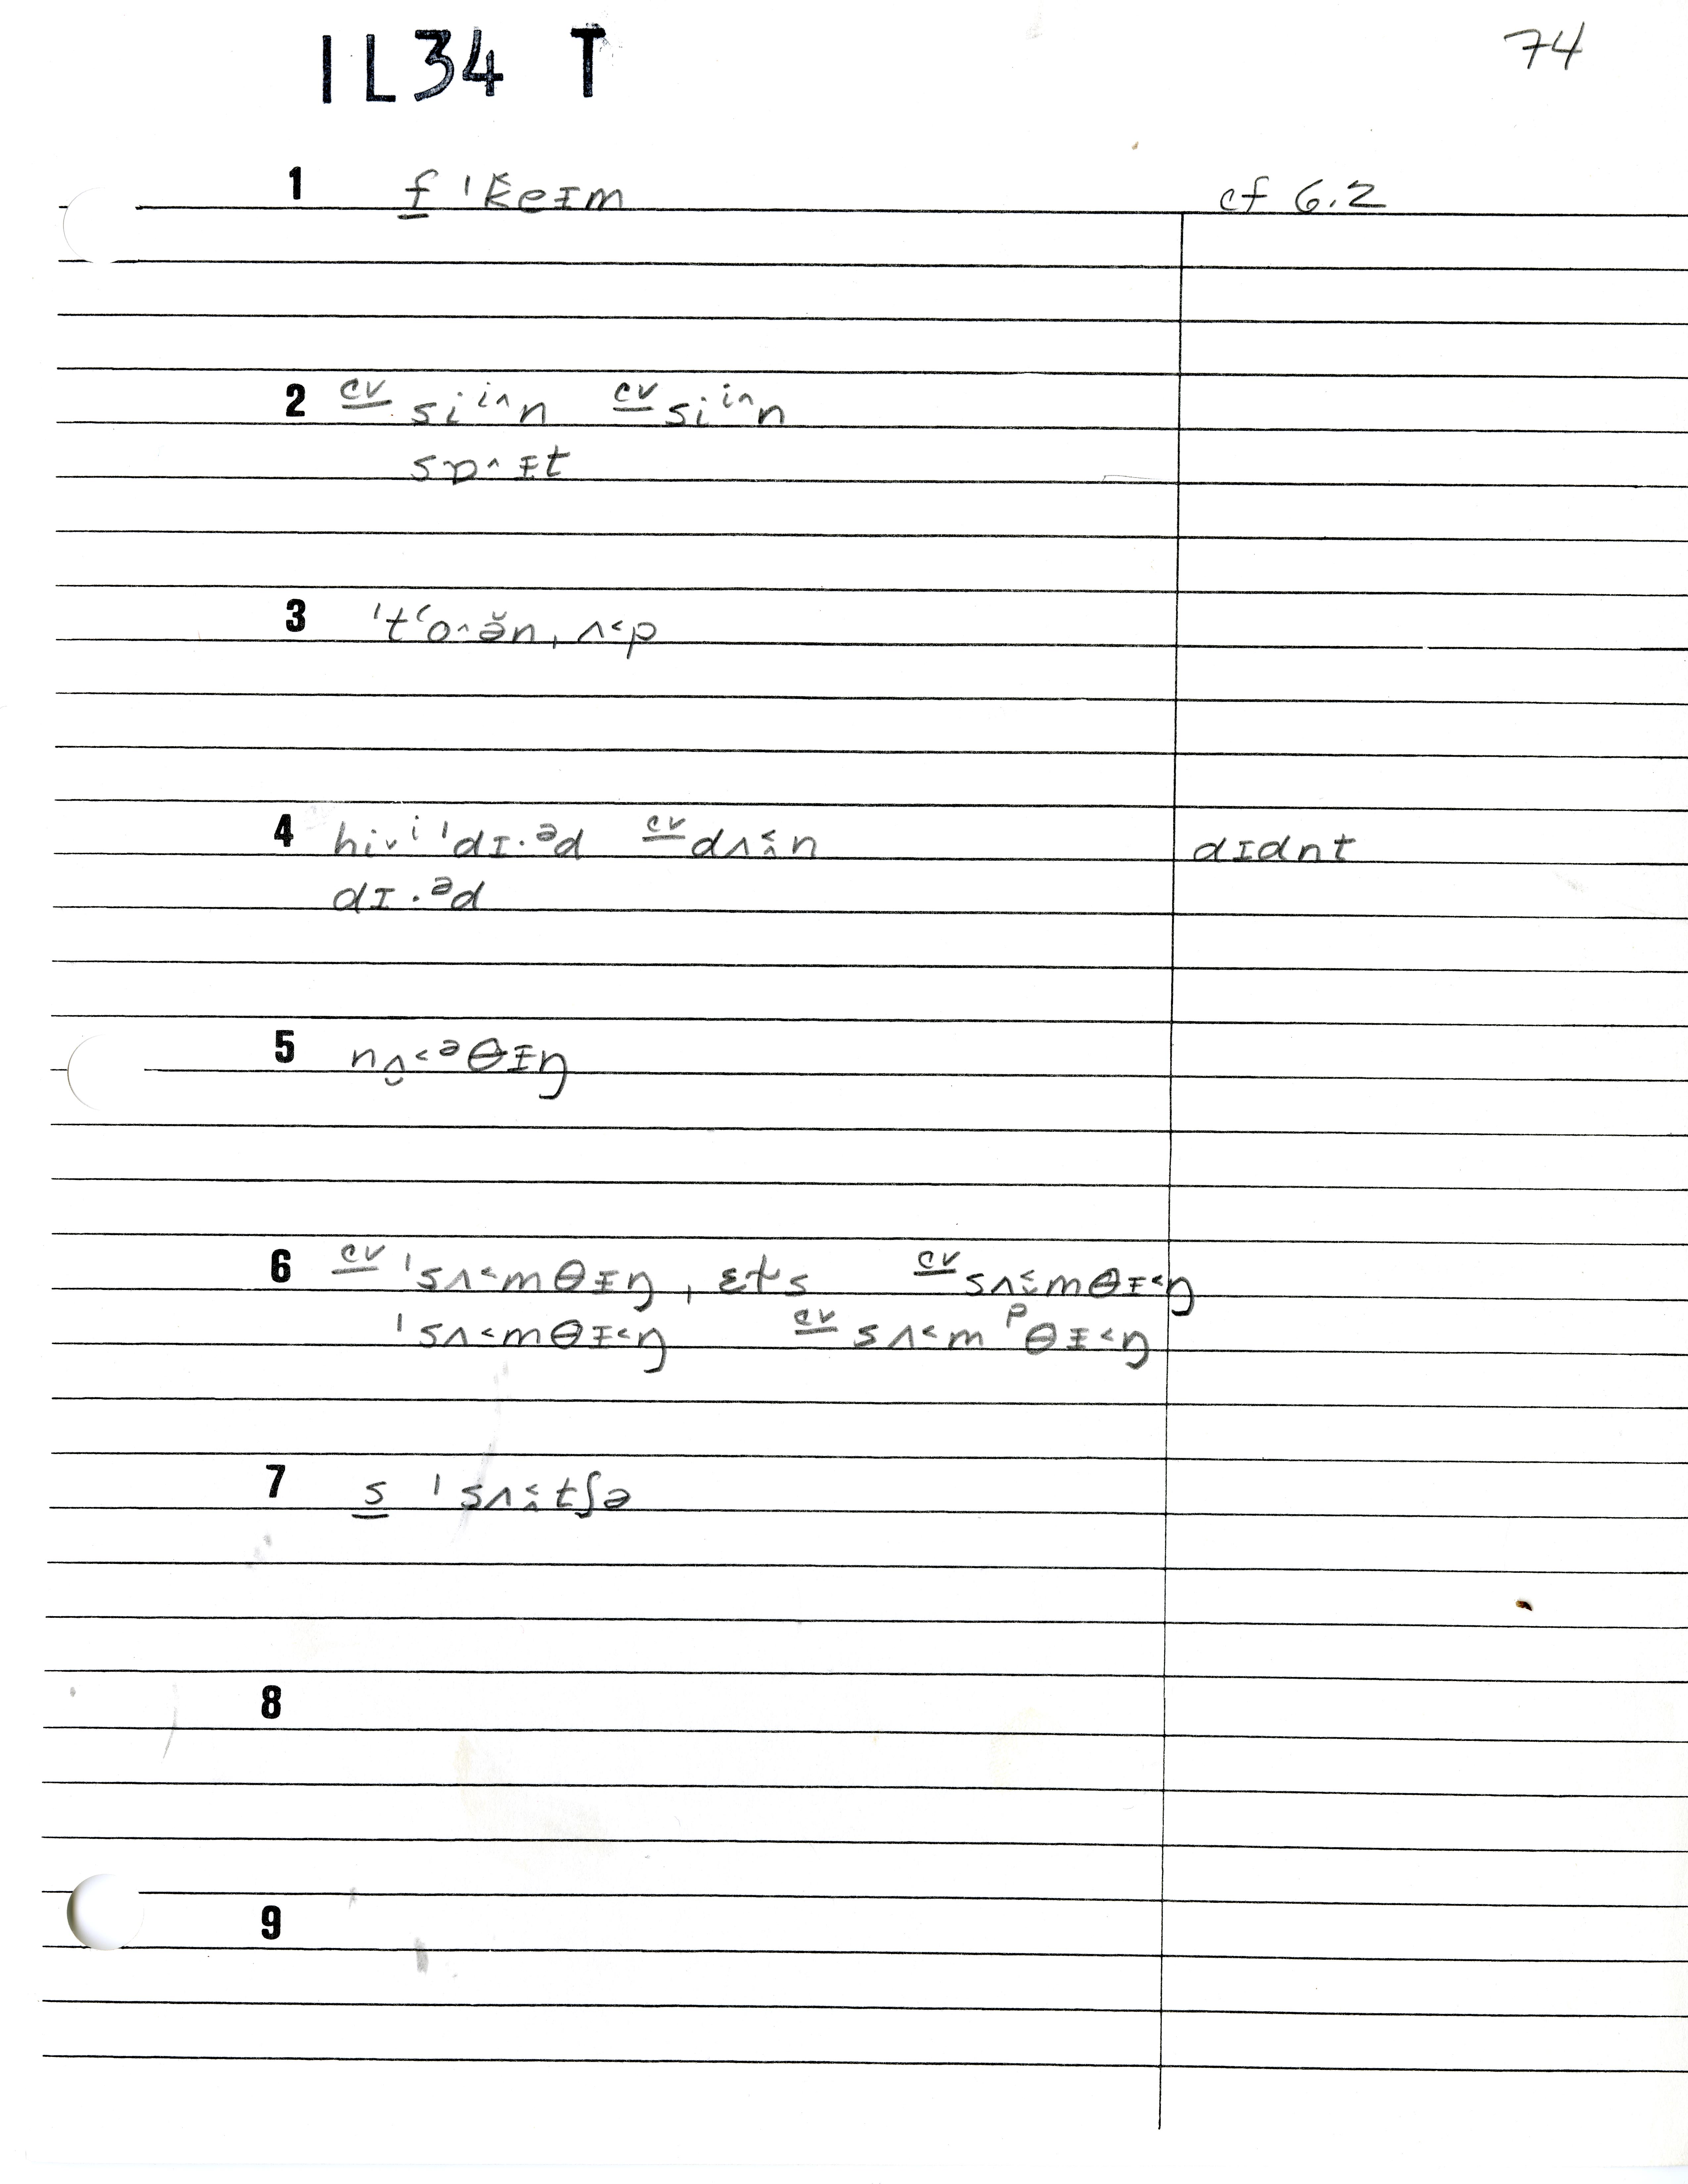 IL34 T 74
1 f ˈk̆eɪm cf 6.2
2 cv siⁱ˄n cv siⁱ˄n
sɒ˄ɪt
3 ˈtʻo˄ə̆n, ʌ˂p
4 hi˅ⁱ ˈdɪ·ᵊd cv dʌ˂̭n dɪdnt
dɪ·ᵊd
5 nʌ̮˂ᵊθɪŋ
6 cv ˈsʌ˂mθɪŋ, ɛts cv sʌ˂̭mθɪ˂ŋ
ˈsʌ˂mθɪ˂ŋ cv sʌ˂mᵖθɪ˂ŋ
7 s ˈsʌ˂̭tʃə
8
9